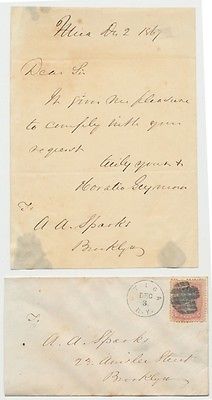 Utica Dec 2 1867
Dear Sir
It gives me pleasure
to comply with your
request
truly yours &
Horatio Seymour
To
A A Sparks
Brooklyn
UTICA
DEC
3
N.Y.
To
A. A. Sparks
23 Ainslie Street
Brooklyn